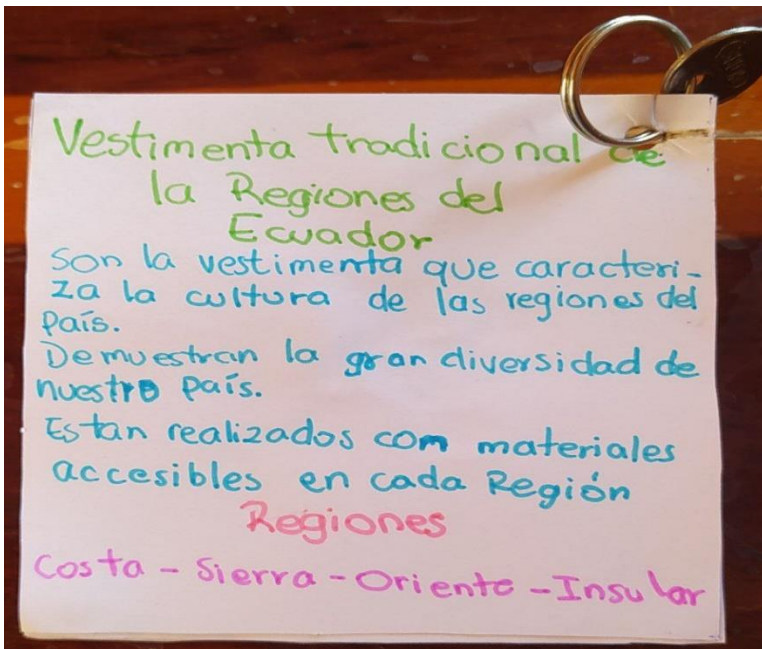 Vestimenta tradicional de
la Regiones del
Ecuador
Son la vestimenta que caracteri-
za la cultura de las regiones del
País.
Demuestran la gran diversidad de
nuestro País.
Estan realizados com materiales
accesibles en cada Región
Regiones
Costa - Sierra - Oriente - Insular